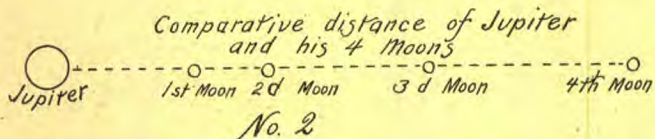 Comparative distance of Jupiter
and his 4 Moons
Jupiter 1st Moon 2d Moon 3d Moon 4th Moon
No. 2